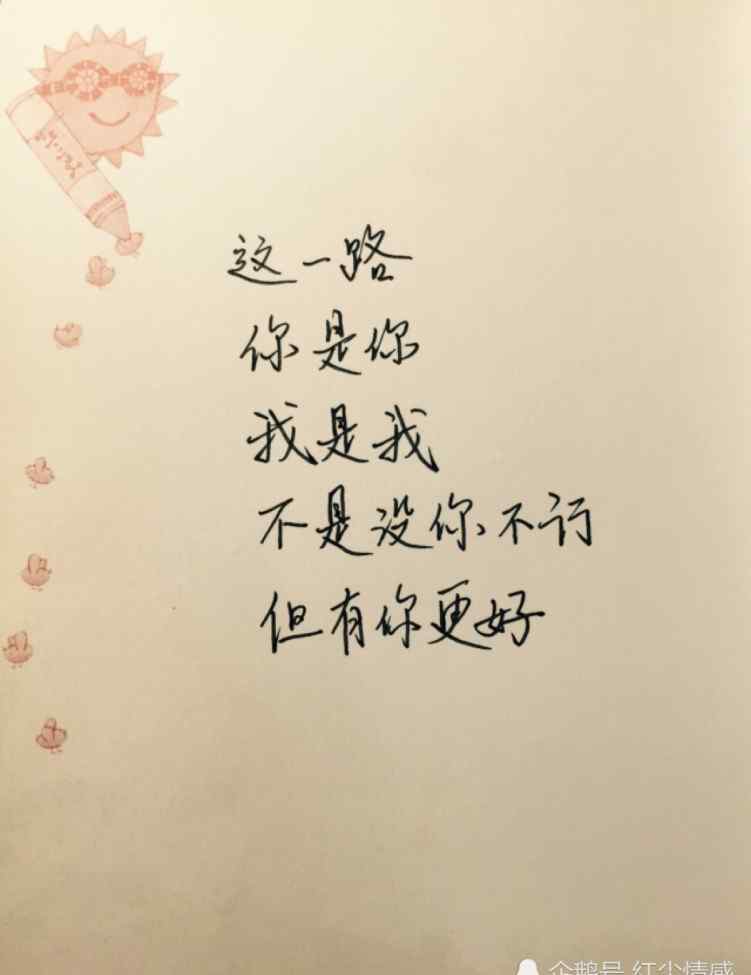 这一路
你是你
我是我
不是没你不行
但有你更好
企鹅号 红尘情感